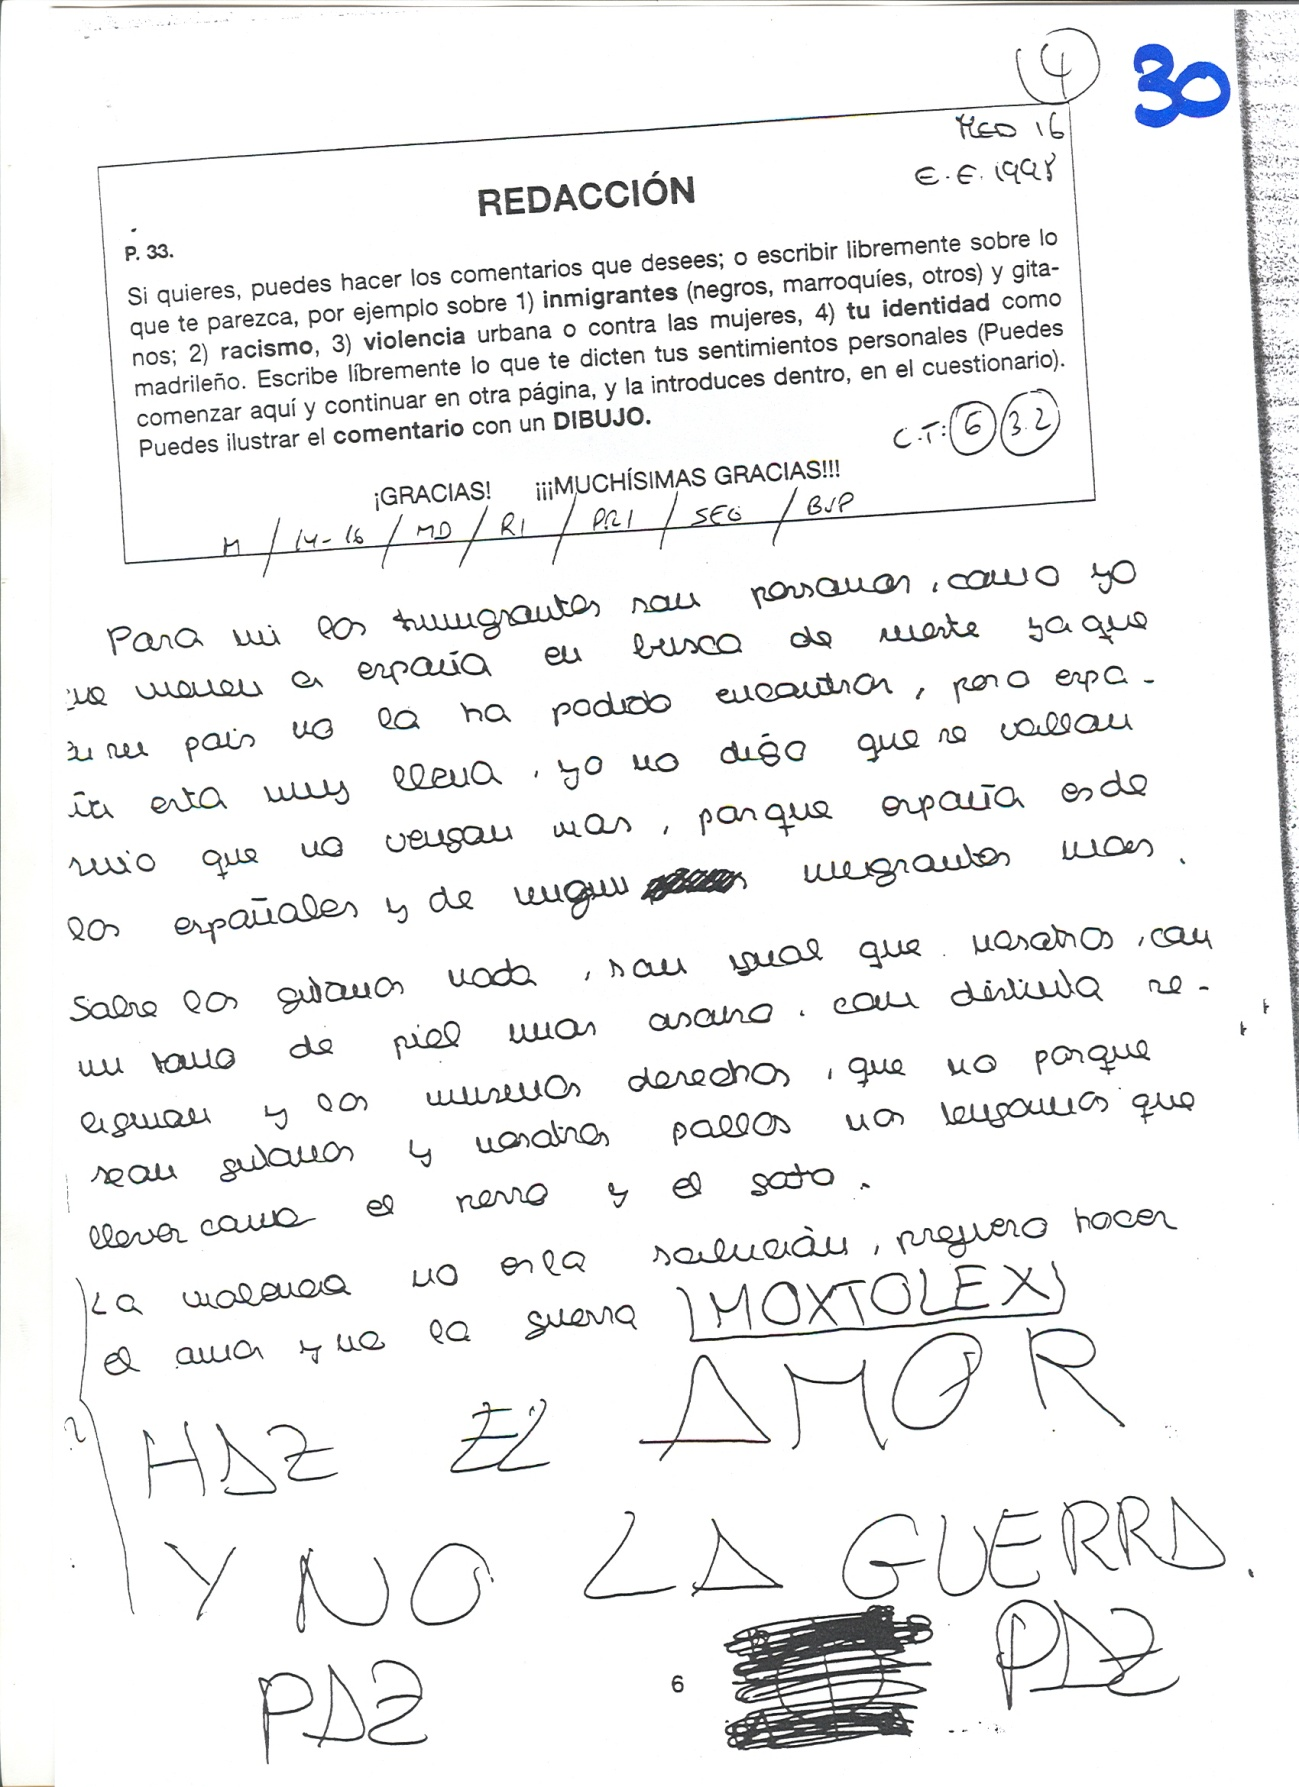 4
30
MED 16
E.E. 1998
REDACCIÓN
P. 33.
Si quieres, puedes hacer los comentarios que desees; o escribir libremente sobre lo
que te parezca, por ejemplo sobre 1) inmigrantes (negros, marroquíes, otros) y gita-
nos; 2) racismo, 3) violencia urbana o contra las mujeres, 4) tu identidad como
madrileño. Escribe líbremente lo que te dicten tus sentimientos personales (Puedes
comenzar aquí y continuar en otra página, y la introduces dentro, en el cuestionario).
Puedes ilustrar el comentario con un DIBUJO.
C.T: 6 3.2
¡GRACIAS! ¡¡¡MUCHÍSIMAS GRACIAS!!!
M / 14-16 / MD / RI / PRI / SEG / BUP
Para mi los Inmigrantes son personas, como yo
que vienen a españa en busca de suerte ya que
en su pais no la ha podido encontrar, pero espa-
ña esta muy llena, yo no digo que se vallan
sino que no vengan mas, porque españa es de
los españoles y de ningun inmigrantes mas.
Sobre los gitanos nada, son igual que nosotros, con
un tono de piel mas oscuro, con distinta re-
ligion y los mismos derechos, que no porque
sean gitanos y nosotros pallos nos tengamos que
llever como el perro y el gato.
La violencia no es la solución, prefiero hacer
el amor y no la guerra MOXTOLEX
HAZ EL AMOR
Y NO LA GUERRA.
PAZ
6
PAZ